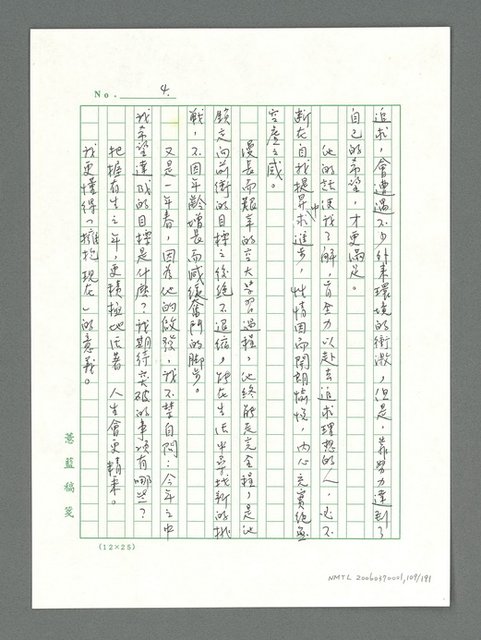 No. 4.
追求，會遭遇不少外來環境的衝激，但是，靠努力達到了
自己的希望，才更滿足。
他的話使我了解，肯全力以赴去追求理想的人，必不
斷在自我提昇中求進步，性情因而開朗愉悅，內心充實絕無
空虛之感。
漫長而艱辛的空大學習過程，他終能走完全程，是他
鎖定向前衝的目標之後絕不退縮，能在生活中尋找新的挑
戰，不因年齡增長而減緩奮鬥的腳步。
又是一年春，因為他的啟發，我不禁自問：今年之中
我希望達成的目標是什麼？我期待突破的事項有哪些？
把握有生之年，更積極地活著，人生會更精采。
我更懂得「擁抱現在」的意義。
薏藍稿箋
(12×25)
NMTL 20060370001,109/191